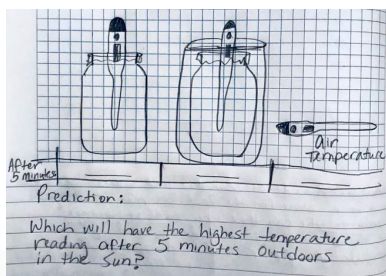 air
temperature
After
5 minutes
Prediction:
Which will have the highest temperature
reading after 5 minutes outdoors
in the sun?